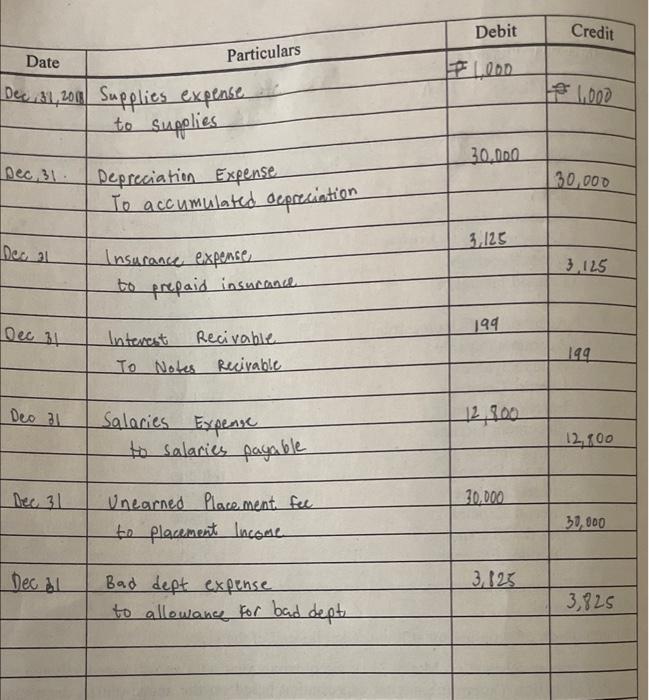 Date Particulars Debit Credit
Dec, 31, 2018 Supplies expense ₱ 1,000
to supplies ₱ 1,000
Dec, 31. Depreciation Expense 30,000
To accumulated depreciation 30,000
Dec 31 Insurance expense, 3,125
to prepaid insurance 3,125
Dec 31 Interest Recivable 199
To Notes Recivable 199
Dec 31 Salaries Expense 12,800
to salaries payable 12,800
Dec 31 Unearned Placement fee 30,000
to placement Income 30,000
Dec 31 Bad dept expense 3,825
to allowance for bad dept 3,825